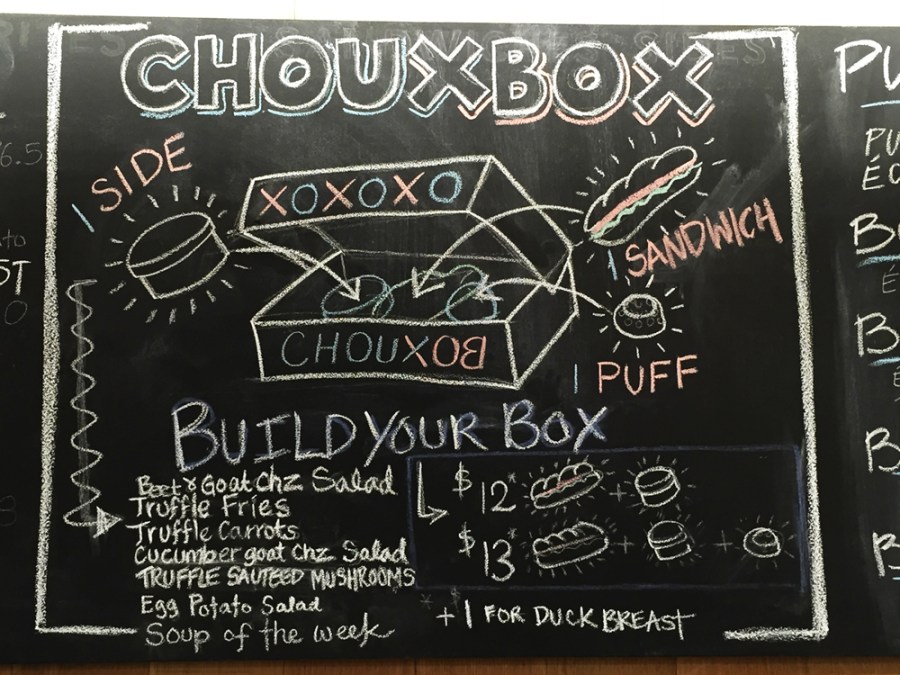 CHOUXBOX
1 SIDE
XOXOXO
1 SANDWICH
CHOUXBOX
1 PUFF
BUILD YOUR BOX
Beet & Goat Chz Salad
Truffle Fries
Truffle Carrots
Cucumber goat chz Salad
TRUFFLE SAUTEED MUSHROOMS
Egg Potato Salad
Soup of the week
$12* +
$13* + +
* $ +1 FOR DUCK BREAST
6.5
ST
PU
ÉC
B
B
B
B